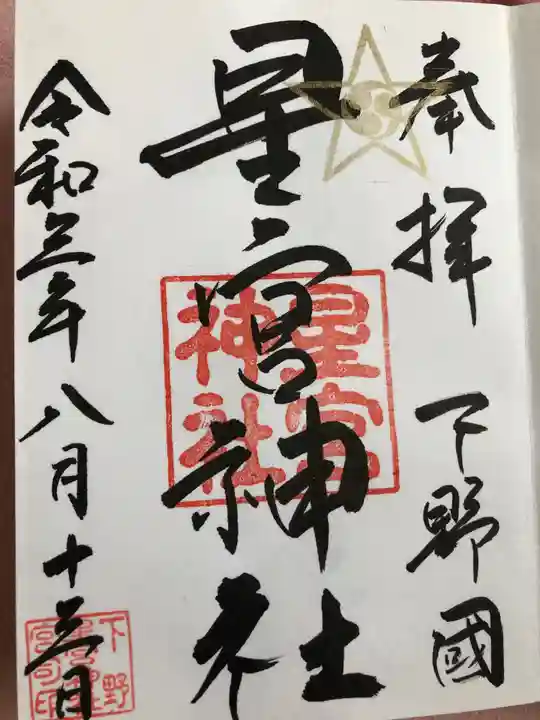 奉拝 下野國
星宮神社
令和三年八月十三日
星宮
神社
下野
宮司印